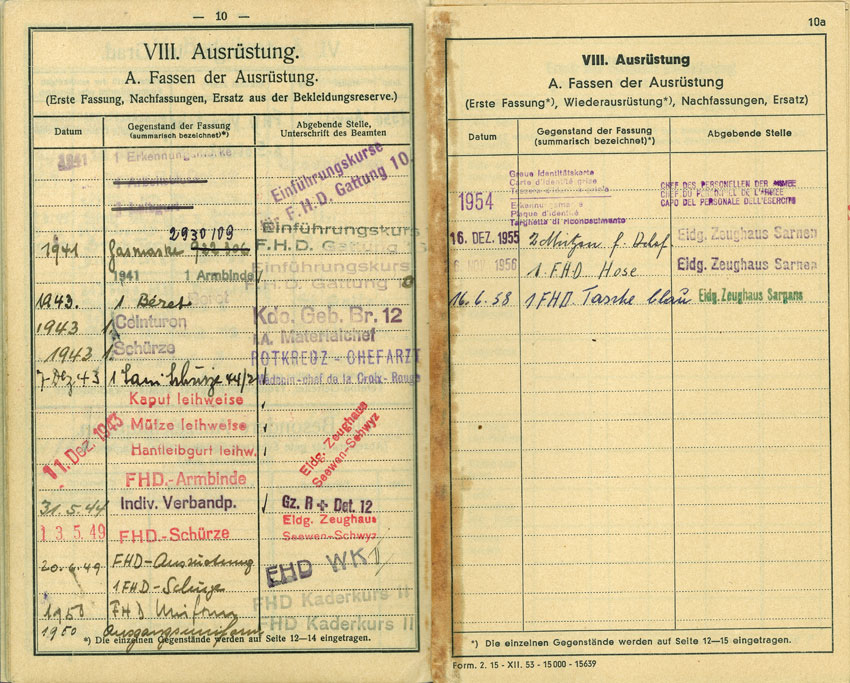 — 10 —
VIII. Ausrüstung.
A. Fassen der Ausrüstung.
(Erste Fassung, Nachfassungen, Ersatz aus der Bekleidungsreserve.)
Datum
Gegenstand der Fassung
(summarisch bezeichnet)*)
Abgebende Stelle,
Unterschrift des Beamten
1941 1 Erkennungsmarke
Einführungskurse
für F.H.D. Gattung 10.
2930/09
1941 Gasmaske
Einführungskurs
F.H.D. Gattung
1941 1 Armbinde
Einführungskurs
F.H.D. Gattung
1943. 1 Béret
1943 1 Ceinturon
Kdo. Geb. Br. 12
i.A. Materialchef
1943 1 Schürze
ROTKREUZ - CHEFARZT
7. Dez. 43 1 44/2
Médecin-chef de la Croix-Rouge
Kaput leihweise
11. Dez. 1943
Mütze leihweise
Hantleibgurt leihw.
Eidg. Zeughaus
Seewen-Schwyz
FHD.-Armbinde
31.5.44 Indiv. Verbandp. Gz. R + Det. 12
13.5.49 FHD.-Schürze
Eidg. Zeughaus
Seewen-Schwyz
20.6.49 FHD-Ausrüstung
FHD WK II
1 FHD-Schürze
FHD Kaderkurs II
1950 FHD Uniform
FHD Kaderkurs II
1950 Ausgangsuniform
*) Die einzelnen Gegenstände werden auf Seite 12—14 eingetragen.
10a
VIII. Ausrüstung
A. Fassen der Ausrüstung
(Erste Fassung*), Wiederausrüstung*), Nachfassungen, Ersatz)
Datum
Gegenstand der Fassung
(summarisch bezeichnet)*)
Abgebende Stelle
1954
Graue Identitätskarte
Carte d'identité grise
Erkennungsmarke
Plaque d'identité
Targhetta di riconoscimento
CHEF DES PERSONELLEN DER ARMEE
CHEF DU PERSONNEL DE L'ARMEE
CAPO DEL PERSONALE DELL'ESERCITO
16. DEZ. 1955 2 Mützen f. Eidg. Zeughaus Sarnen
1956 1 FHD Hose Eidg. Zeughaus Sarnen
16.6.58 1 FHD Tasche blau Eidg. Zeughaus Sargans
*) Die einzelnen Gegenstände werden auf Seite 12—15 eingetragen.
Form. 2. 15 - XII. 53 - 15000 - 15639